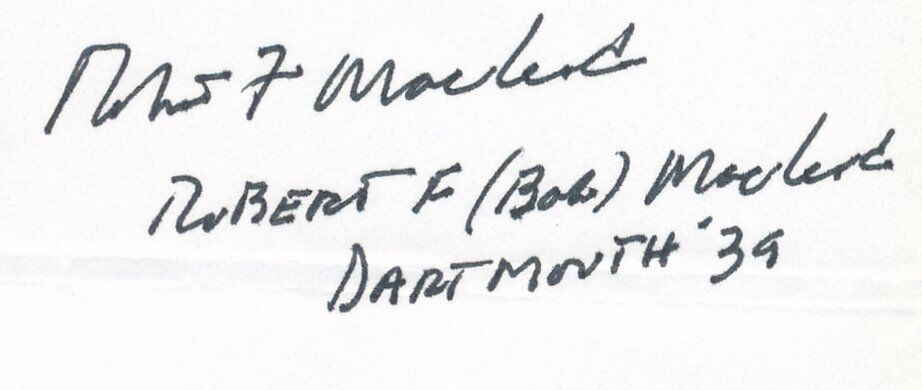 Robert F MacLeod
ROBERT F (Bob) MacLeod
DARTMOUTH '39